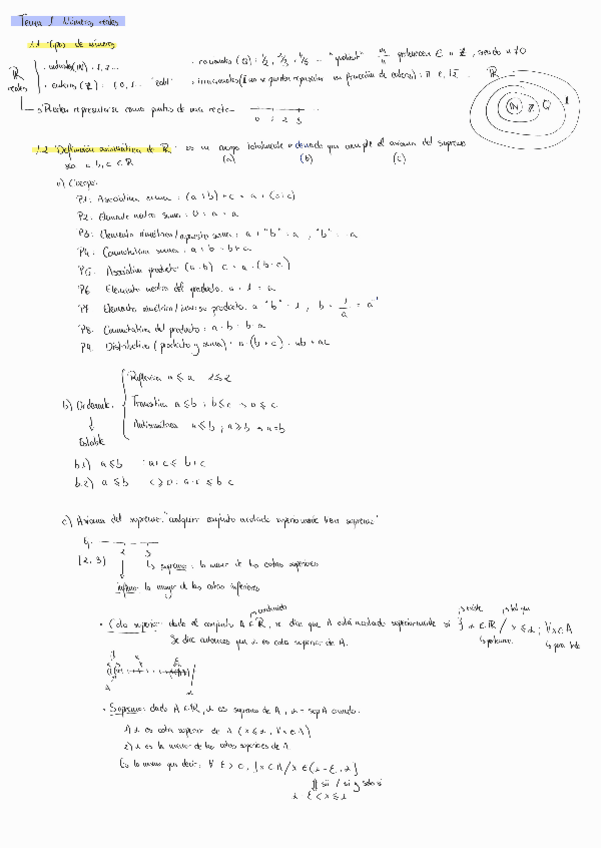 Tema 1 Números reales
1.1 Tipos de números
ℝ reales
· naturales (ℕ): 1, 2...
· racionales (ℚ): 1/2, 1/3,
· enteros (ℤ): 1, 0, 1...
ℝ
ℕ ℤ ℚ I
→ Pueden representarse como puntos de una recta
0 1 2 3
1.2 Definición axiomática de ℝ: es un cuerpo totalmente ordenado que cumple el axioma del supremo
(a) (b) (c)
a, b, c ∈ ℝ
a) Cuerpo
P1: Asociativa suma: (a + b) + c = a + (b + c)
P2. Elemento neutro suma: 0 + a = a
P3. Elemento simétrico/opuesto suma: a + "b" = , "b" = -a
P4. Conmutativa suma: a + b = b + a
P5. Asociativa producto (a · b) · c = a · (b · c)
P6 Elemento neutro del producto. a · 1 = a
P7 Elemento simétrico/inverso producto. a · "b" = 1, b = 1/a = a
P8. Conmutativa del producto: a · b = b · a
P9. Distributiva (producto y suma): a · (b + c) = ab + ac
b) Ordenado
Reflexiva a ≤ a 2 ≤ 2
Transitiva a ≤ b ; b ≤ c → a ≤ c
Antisimétrica a ≤ b ; a ≥ b → a = b
↓
Estable
b.1) a ≤ b : a + c ≤ b + c
b.2) a ≤ b c ≥ 0 : a · c ≤ b · c
c) Axioma del supremo: "cualquier conjunto acotado superiormente tiene supremo"
2 3
[2, 3)
↳ supremo: la menor de las cotas superiores
ínfimo: la mayor de las cotas inferiores
· Cota superior: dado el conjunto A ⊂ ℝ, se dice que A está acotado superiormente si ∃ α ∈ ℝ / x ≤ α ; ∀x ∈ A
contenido
existe
tal que
para todo
Se dice entonces que α es cota superior de A.
· Supremo: dado A ⊂ ℝ, α es supremo de A, α = sup A cuando:
1) α es cota superior de A (x ≤ α, ∀x ∈ A)
2) α es la menor de las cotas superiores de A
Es lo mismo que decir: ∀ ε > 0, ∃ x ∈ A / x ∈ (α - ε, α]
⇕ sii / si y solo si
α - ε < x ≤ α